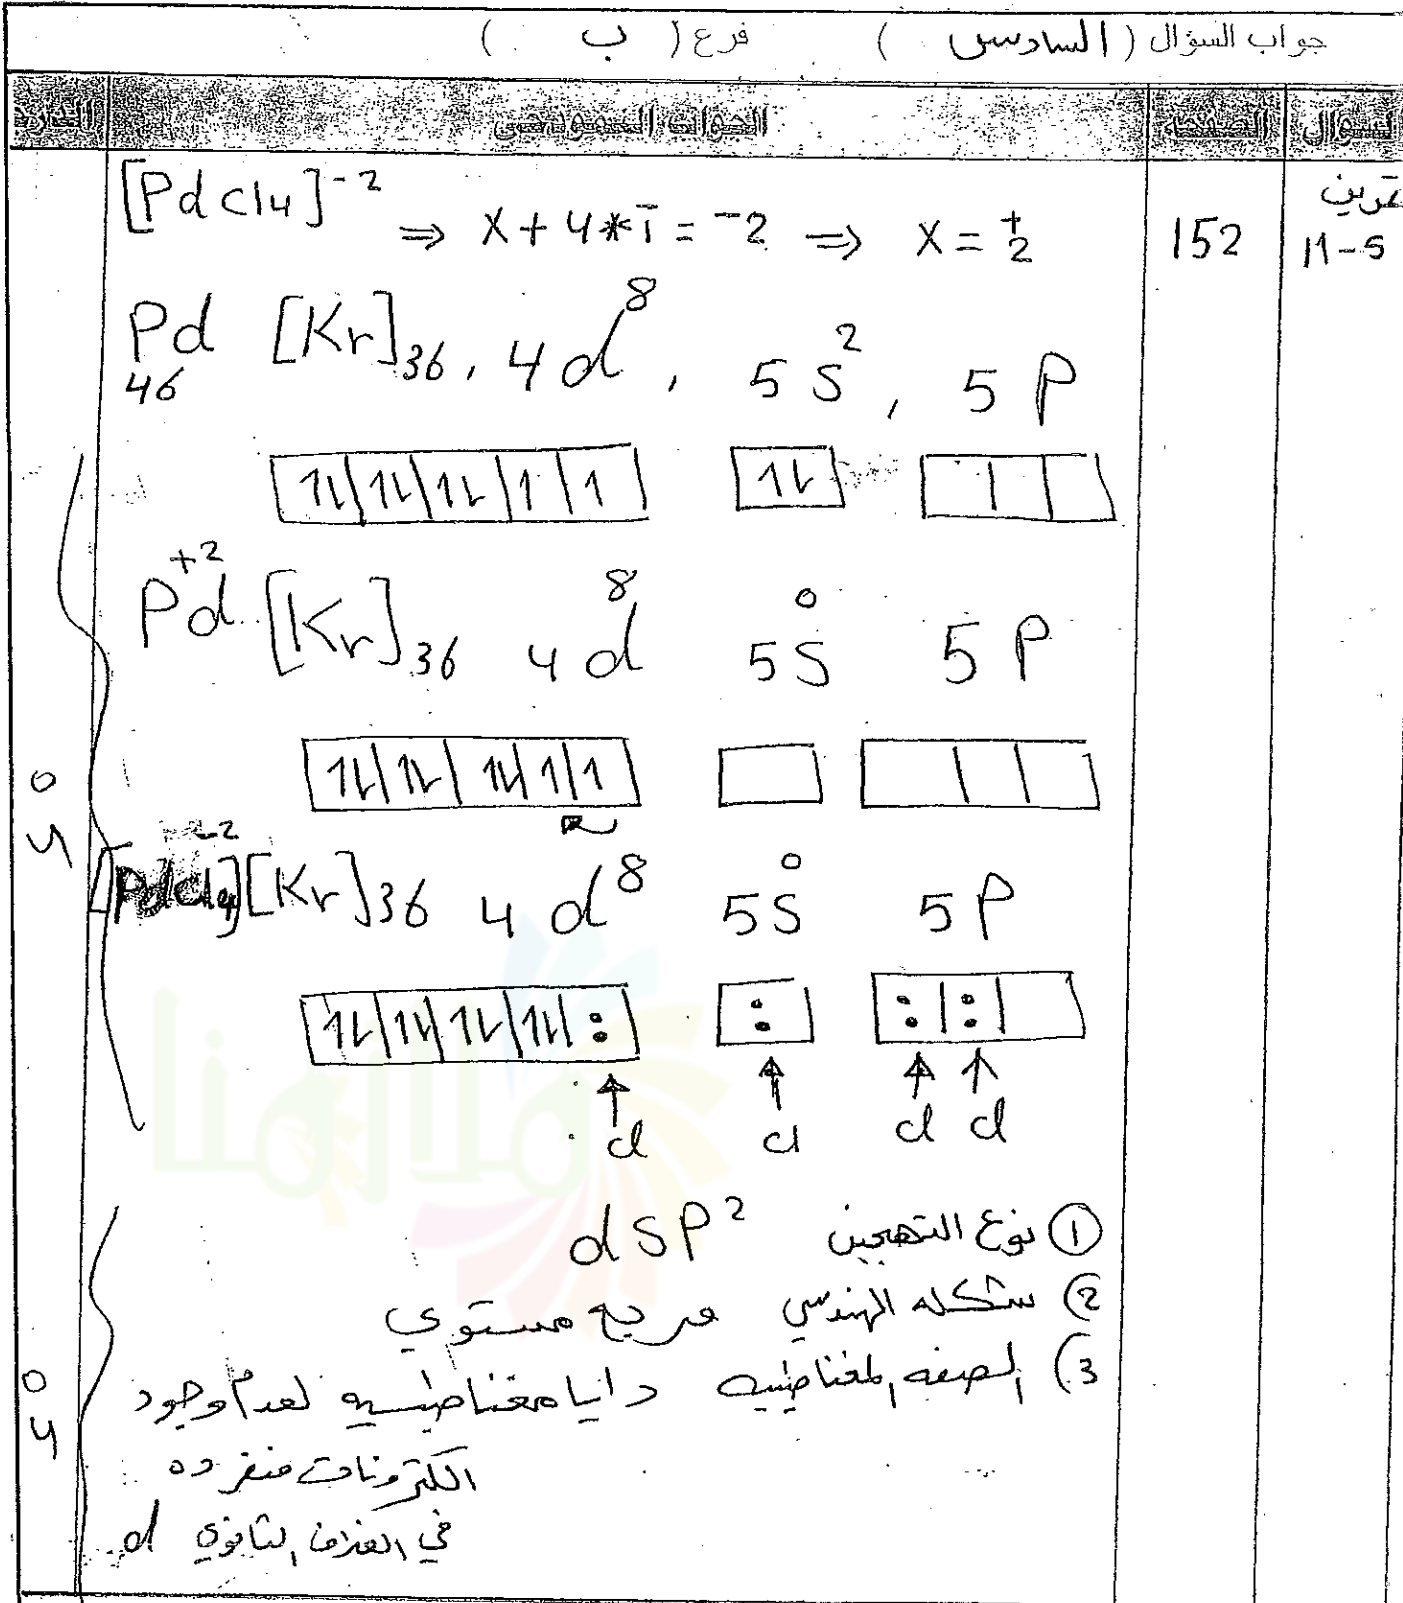 جواب السؤال ( السادس ) فرع ( ب )
السؤال الصفحة الجواب النموذجي الدرجة
تمرين 5-11 152
[PdCl4]⁻² ⇒ X + 4*1̄ = ⁻2 ⇒ X = ⁺2
Pd 46 [Kr]36, 4d⁸, 5S², 5P
1L 1L 1L 1 1 1L
Pd⁺² [Kr]36 4d⁸ 5S⁰ 5P
1L 1L 1L 1 1
[PdCl4]⁻² [Kr]36 4d⁸ 5S⁰ 5P
1L 1L 1L 1L : : : :
cl cl cl cl
① نوع التهجين dSP²
② شكله الهندسي مربع مستوي
3) الصفه المغناطيسيه دايا مغناطيسيه لعدم وجود
الكترونات منفرده
في الغلاف الثانوي d